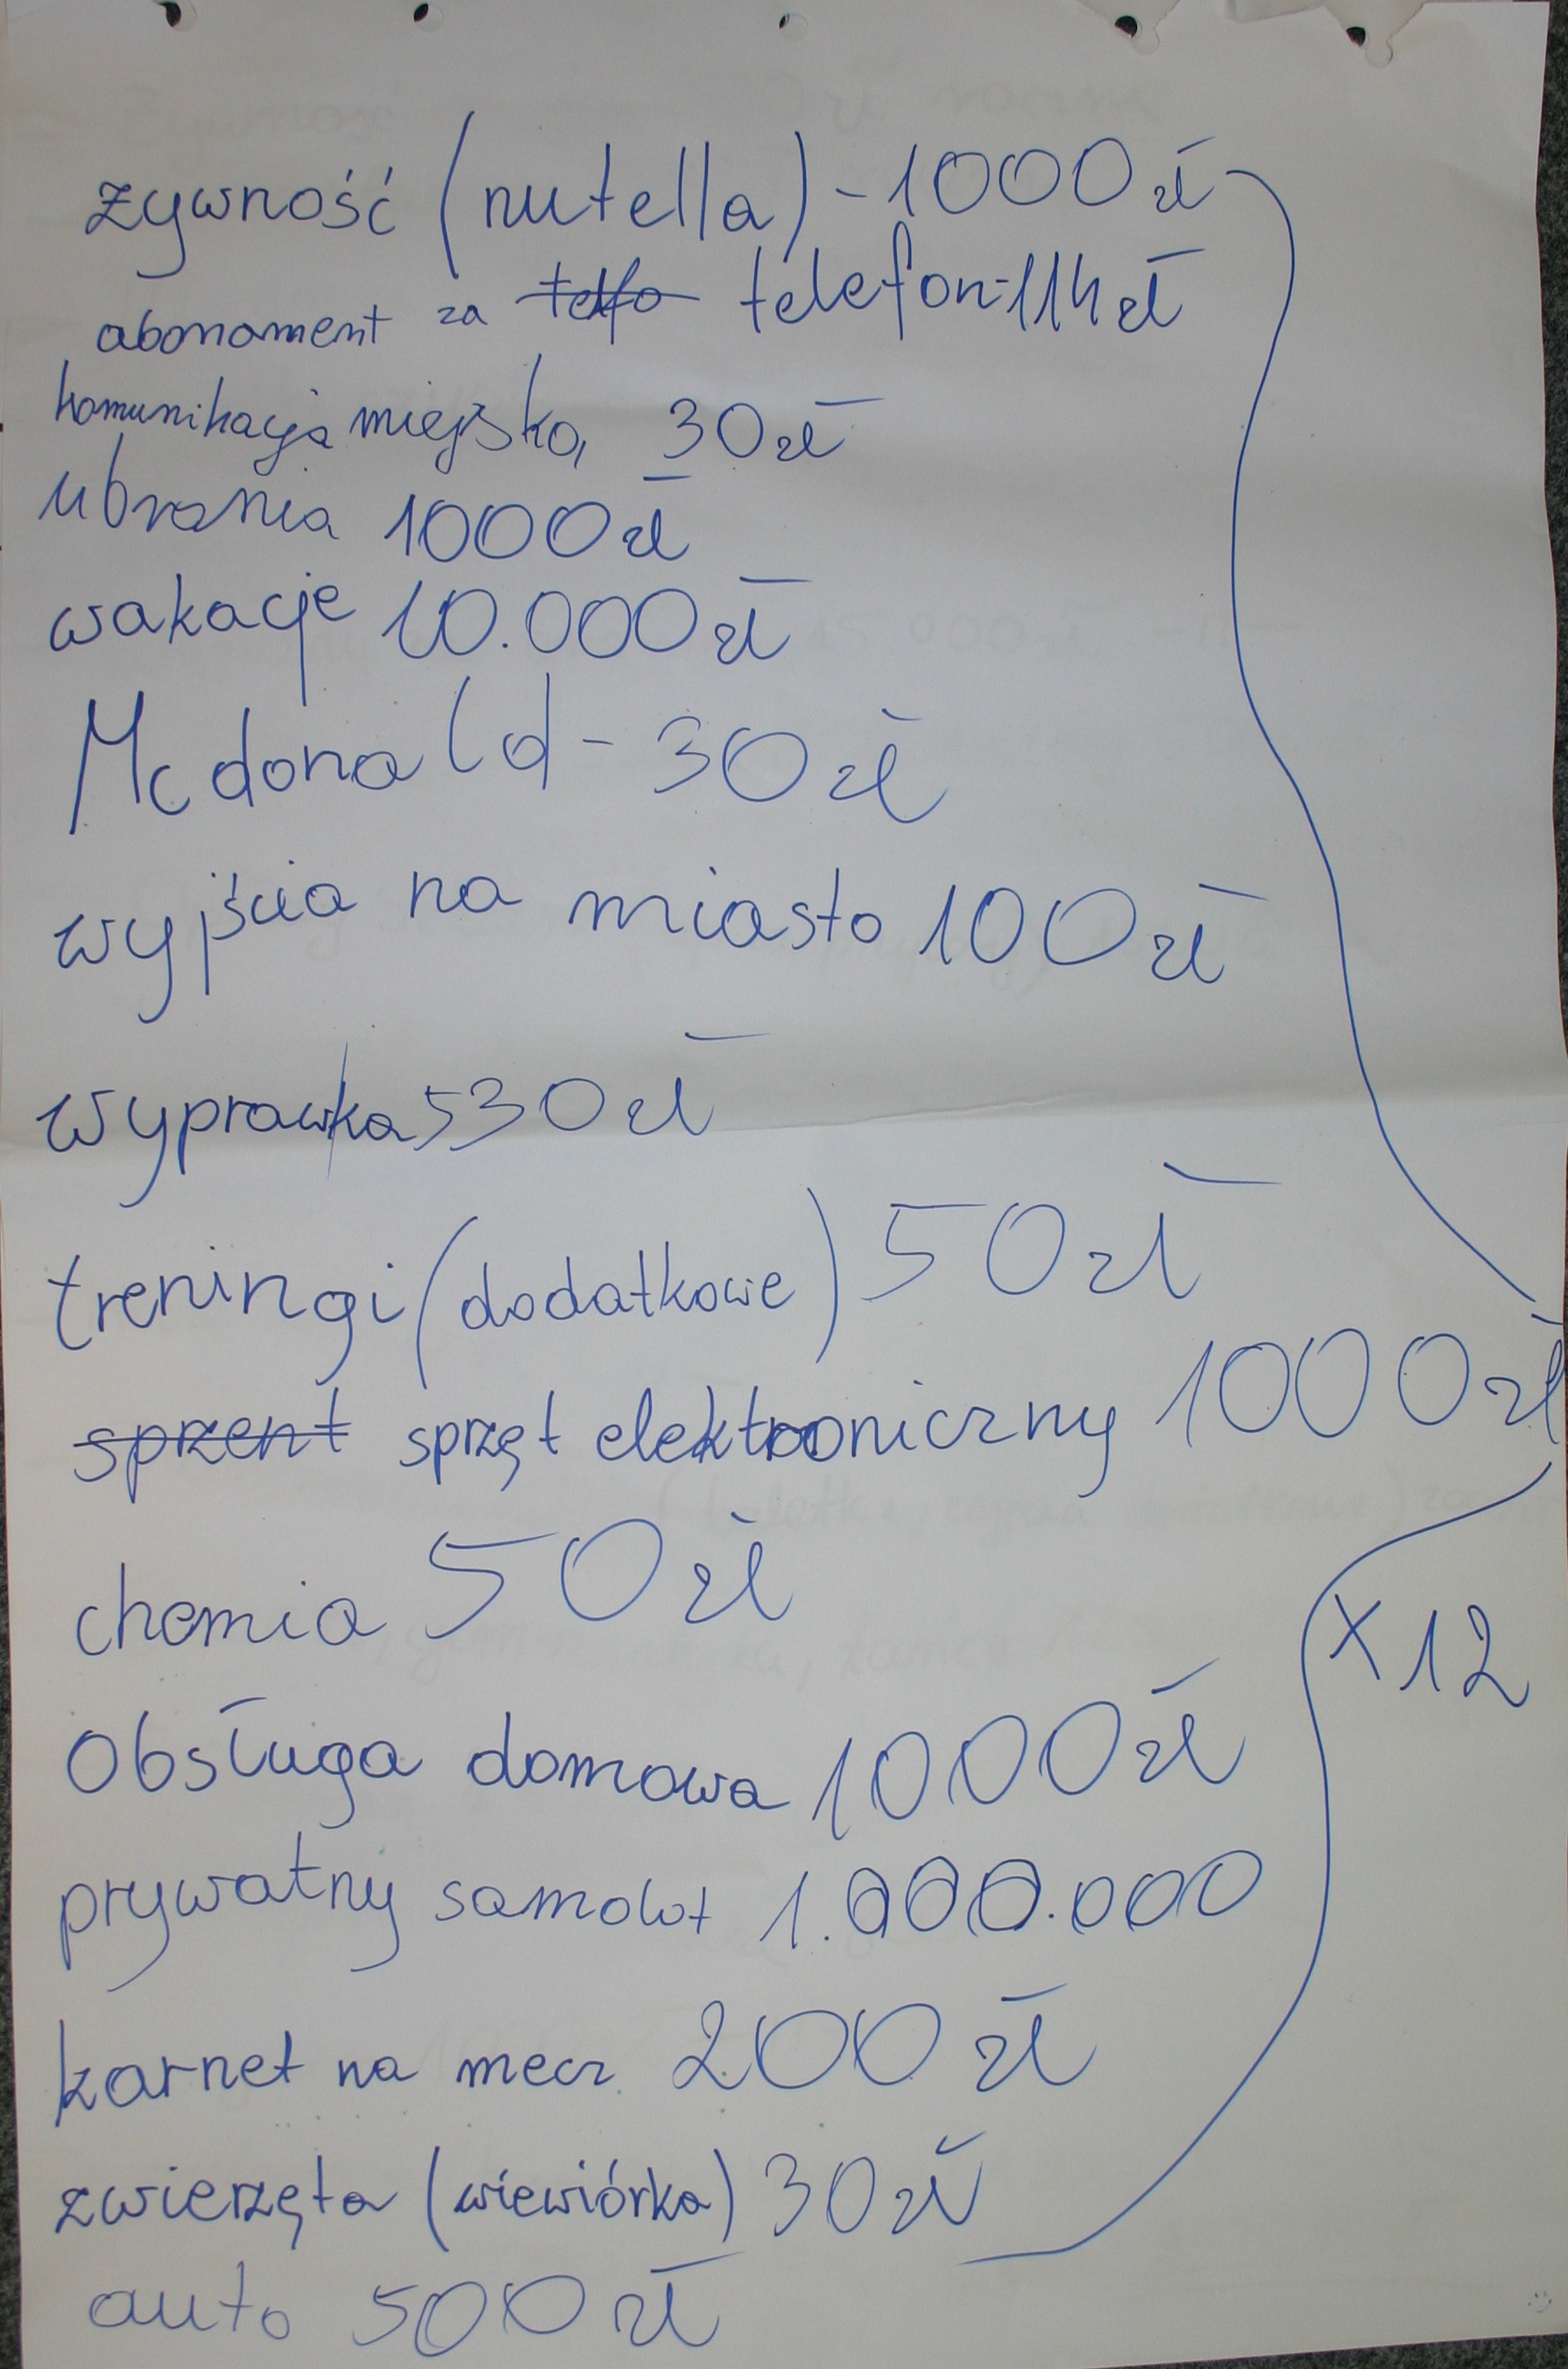 żywność (nutella) - 1000 zł
abonament za telfo telefon-114 zł
komunikacja miejska 30 zł
ubrania 1000 zł
wakacje 10.000 zł
Mc donald - 30 zł
wyjścia na miasto 100 zł
wyprawka 530 zł
treningi (dodatkowe) 50 zł
sprzent sprzęt elektroniczny 1000 zł
chemia 50 zł
x 12
Obsługa domowa 1000 zł
prywatny samolot 1.000.000
karnet na mecz 200 zł
zwierzęta (wiewiórka) 30 zł
auto 500 zł